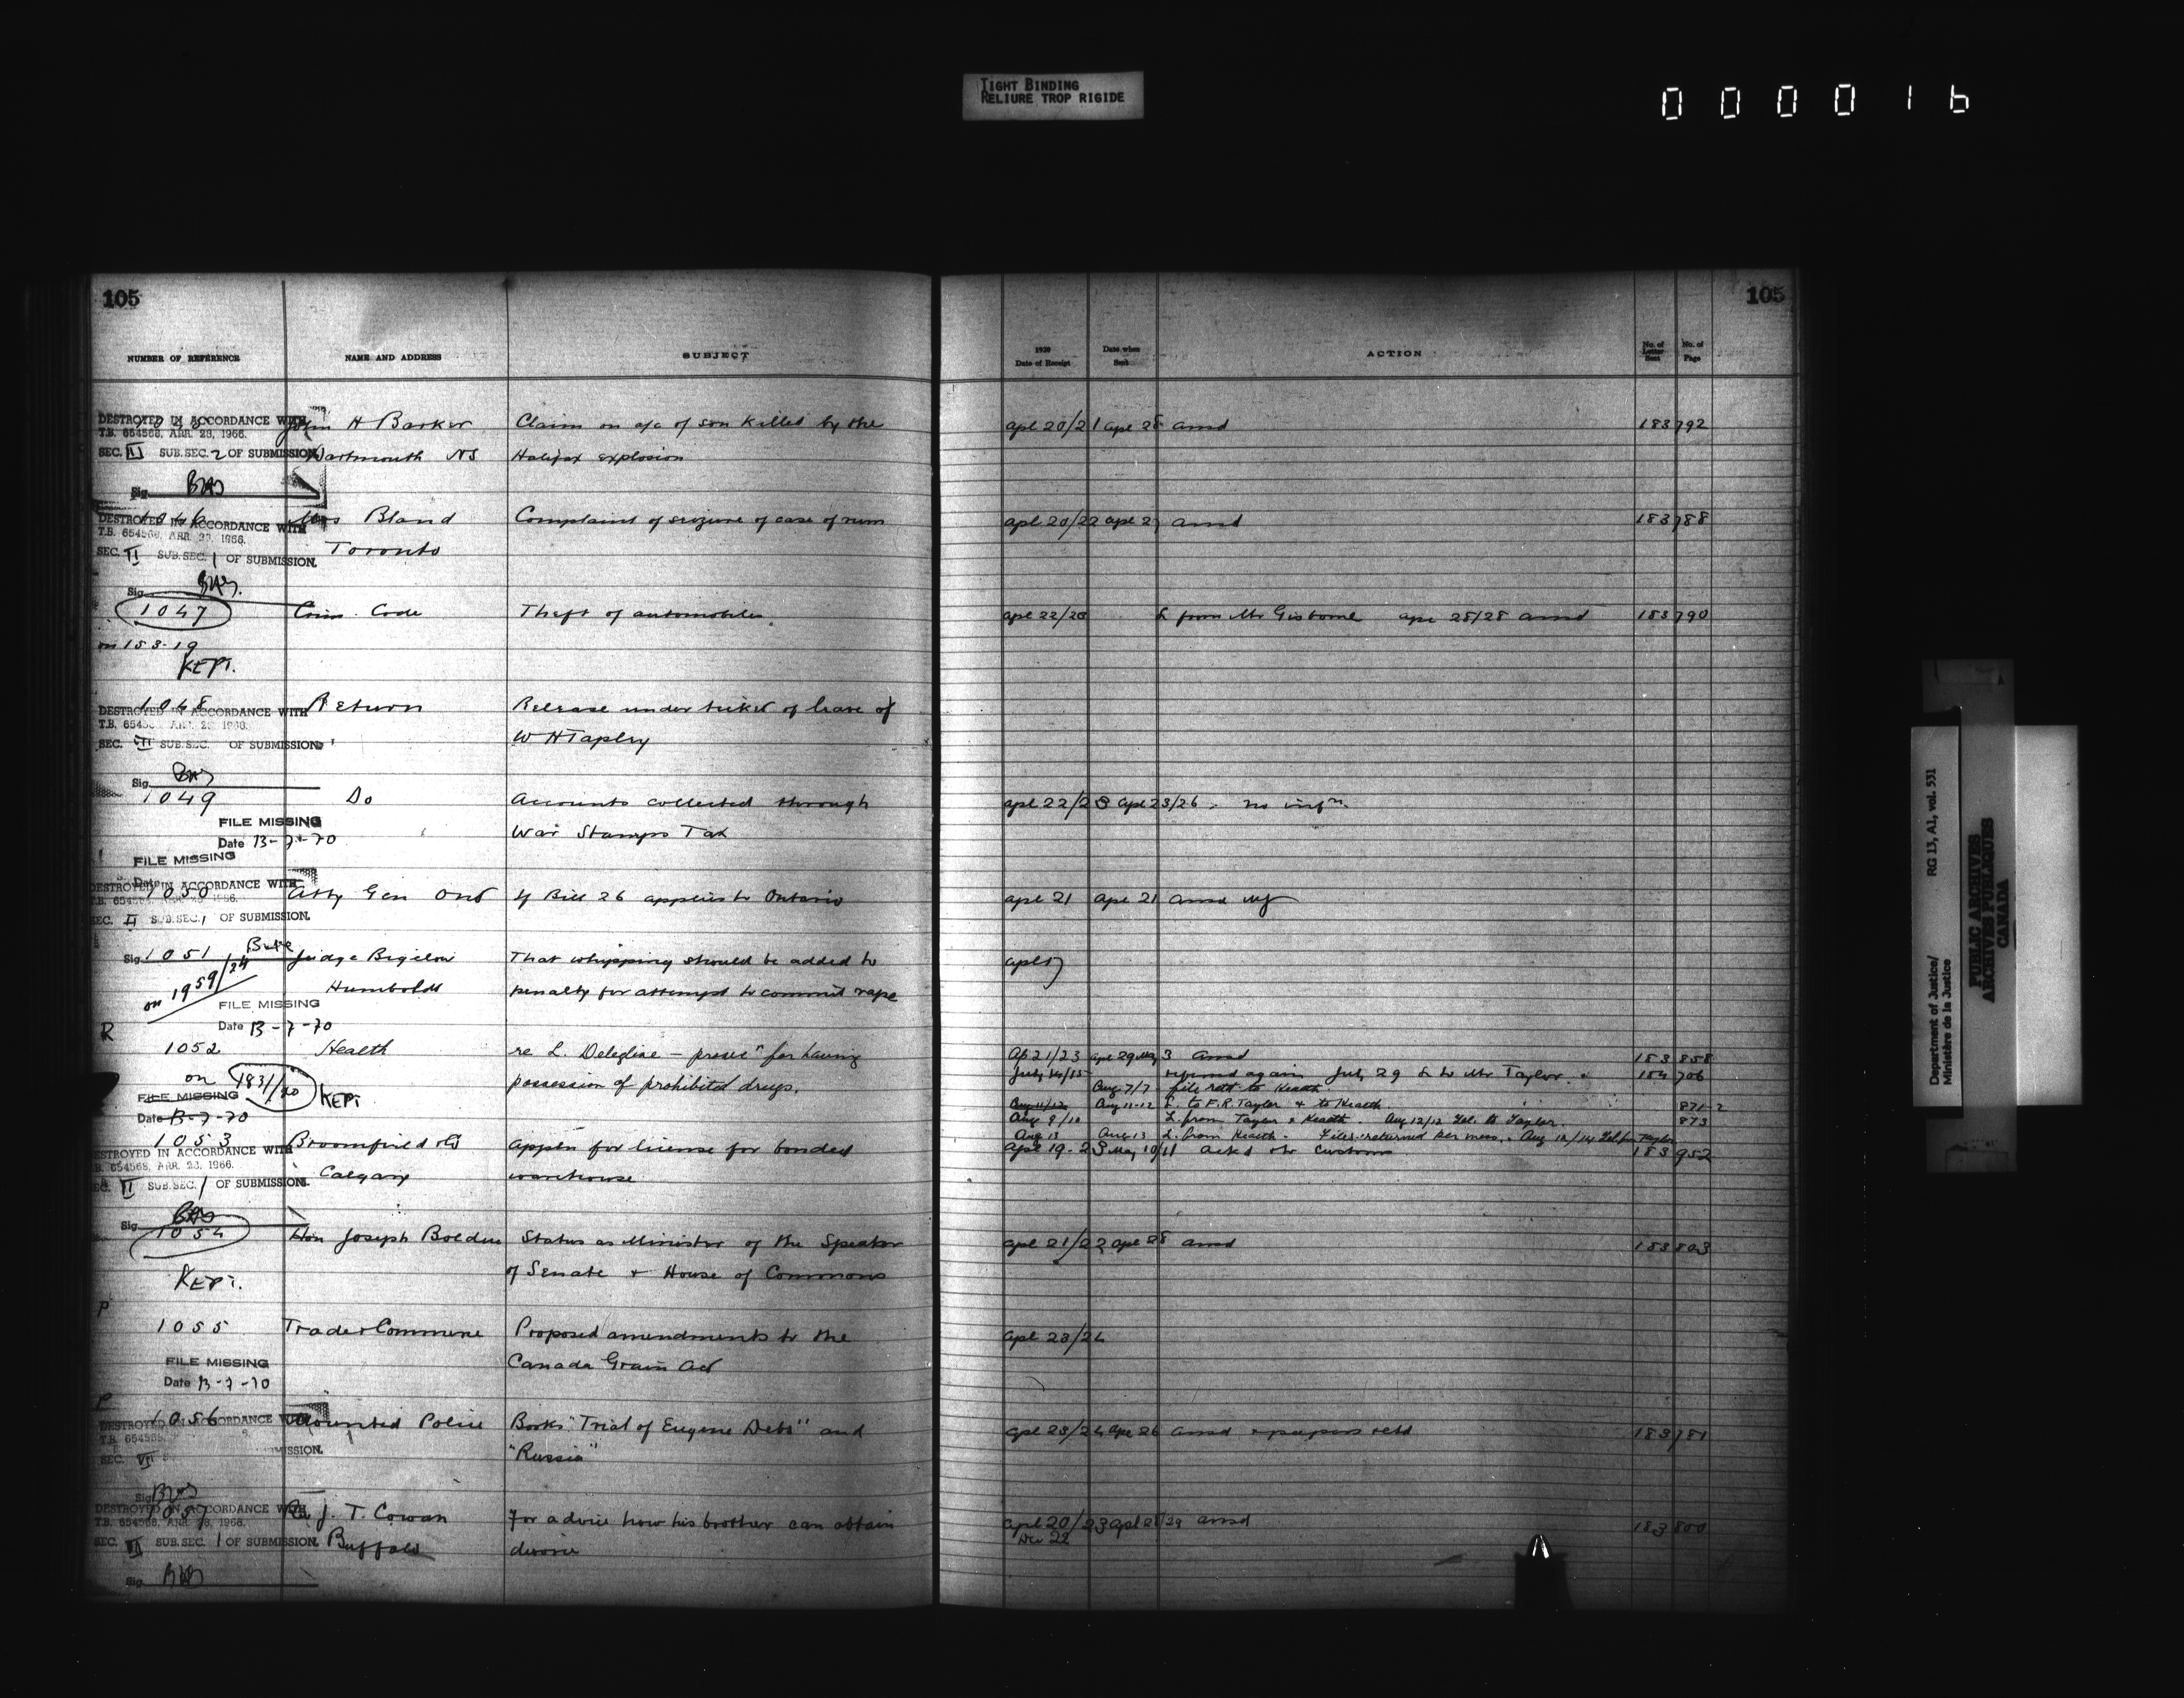 TIGHT BINDING
RELIURE TROP RIGIDE
000016
105
NUMBER OF REFERENCE NAME AND ADDRESS SUBJECT
DESTROYED IN ACCORDANCE WITH John H Barker Claim on a/c of son killed by the
T.B. 654568, APR. 28, 1966.
SEC. II SUB.SEC. 2 OF SUBMISSION. Dartmouth NS Halifax explosion
Sig.
1046 Bland Complaint of seizure of case of rum
DESTROYED IN ACCORDANCE WITH
T.B. 654568, APR. 28, 1966.
SEC. II SUB.SEC. 1 OF SUBMISSION. Toronto
Sig.
1047 Crim. Code Theft of automobiles.
on 153-19
KEPT.
1048 Return Release under ticket of leave of
DESTROYED IN ACCORDANCE WITH
SEC. SUB.SEC. OF SUBMISSION. W H Tapley
Sig.
1049 Do Accounts collected through
FILE MISSING War Stamps Tax
Date 13-7-70
FILE MISSING
Date
DESTROYED IN ACCORDANCE WITH
1050 Atty Gen Ont If Bill 26 applies to Ontario
SEC. II SUB.SEC. 1 OF SUBMISSION.
Sig. 1051 Judge Bigelow That whipping should be added to
on 1959/24 Humboldt penalty for attempt to commit rape
FILE MISSING
Date 13-7-70
R
1052 Health re L. Deleglise - prosecn for having
on 1831/20 KEPT possession of prohibited drugs.
FILE MISSING
Date 13-7-70
1053 Broomfield Appln for license for bonded
DESTROYED IN ACCORDANCE WITH
T.B. 654568, APR. 28, 1966.
SEC. II SUB.SEC. 1 OF SUBMISSION. Calgary warehouse
Sig.
1054 Hon Joseph Bolduc Status as Minister of the Speaker
KEPT. of Senate + House of Commons
P
1055 Trade + Commerce Proposed amendments to the
FILE MISSING Canada Grain Act
Date 13-7-70
P
1056 Mounted Police Books "Trial of Eugene Debs" and
DESTROYED IN ACCORDANCE WITH
SEC. VII "Russia"
Sig.
1057 J. T. Cowan For advice how his brother can obtain
DESTROYED IN ACCORDANCE WITH
T.B. 654568, APR. 28, 1966.
SEC. SUB.SEC. 1 OF SUBMISSION. Buffalo divorce
Sig.
105
1920 Date of Receipt Date when Sent ACTION No. of Letter Sent No. of Page
Apl 20/21 Apl 28 ansd 183 792
Apl 20/22 Apl 27 ansd 183 788
Apl 22/23 L from Mr Gisborne Apl 28/28 ansd 183 790
Apl 22/23 Apl 23/26 - no infn.
Apl 21 Apl 21 ansd
Apl 17
Ap 21/23 Apl 29 May 3 ansd 183 858
July 14/15 July 29 L to Mr Taylor. 184 706
Aug 7/7 file retd to Health.
Aug 11/12 Aug 11-12 L. to F.R. Taylor + to Health 871-2
Aug 9/10 L. from Taylor + Health. Aug 12/12 Tel. to Taylor. 873
Aug 13 Aug 13 L. from Health. Files returned per mess. Aug 13/14 Tel from Taylor
Apl 19-23 May 10/11 Customs 183 952
Apl 21/22 Apl 28 ansd 183 803
Apl 23/24
Apl 23/24 Apl 26 ansd + papers retd 183 781
Apl 20/23 Apl 28/29 ansd 183 800
Dec 22
Department of Justice/ RG 13, A1, vol. 531
Ministère de la Justice
PUBLIC ARCHIVES
ARCHIVES PUBLIQUES
CANADA